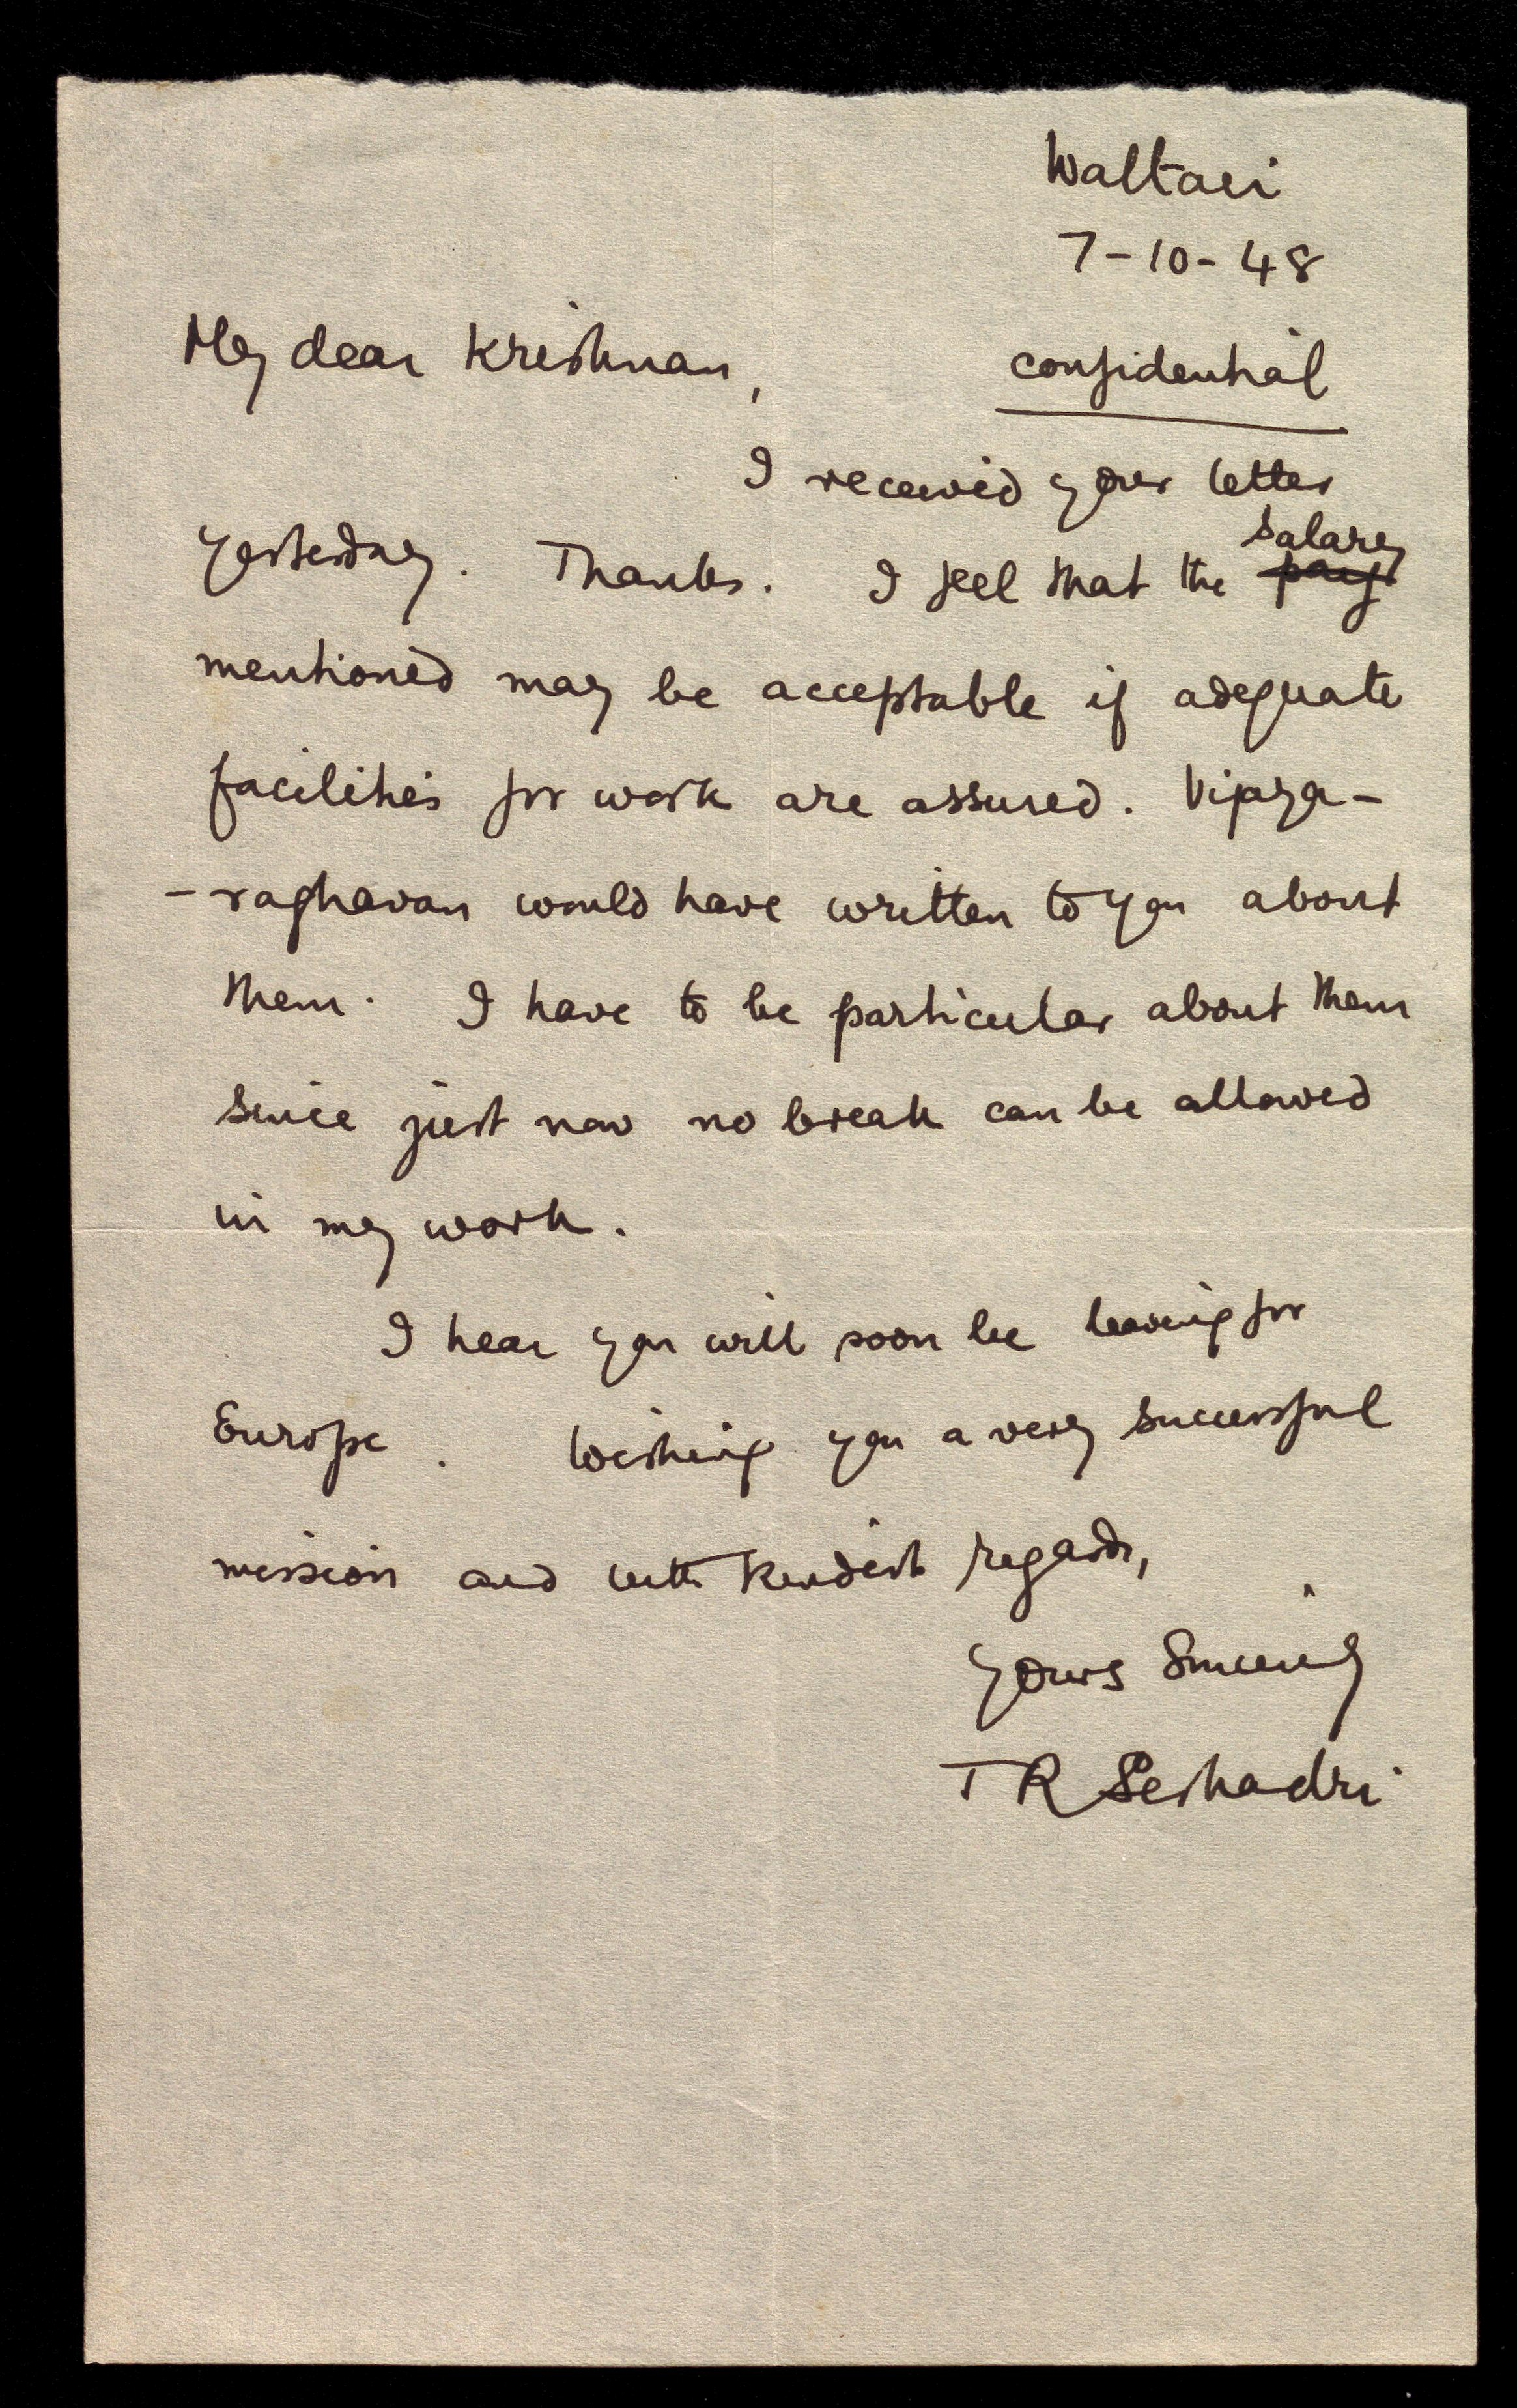 Waltair
7-10-48
My dear Krishnan,
confidential
I received your letter
salary
yesterday. Thanks. I feel that the
mentioned may be acceptable if adequate
facilities for work are assured. Vijaya-
-raghavan would have written to you about
them. I have to be particular about them
since just now no break can be allowed
in my work.
I hear you will soon be leaving for
Europe. Wishing you a very successful
mission and with kindest regards,
Yours Sincerely
T R Seshadri